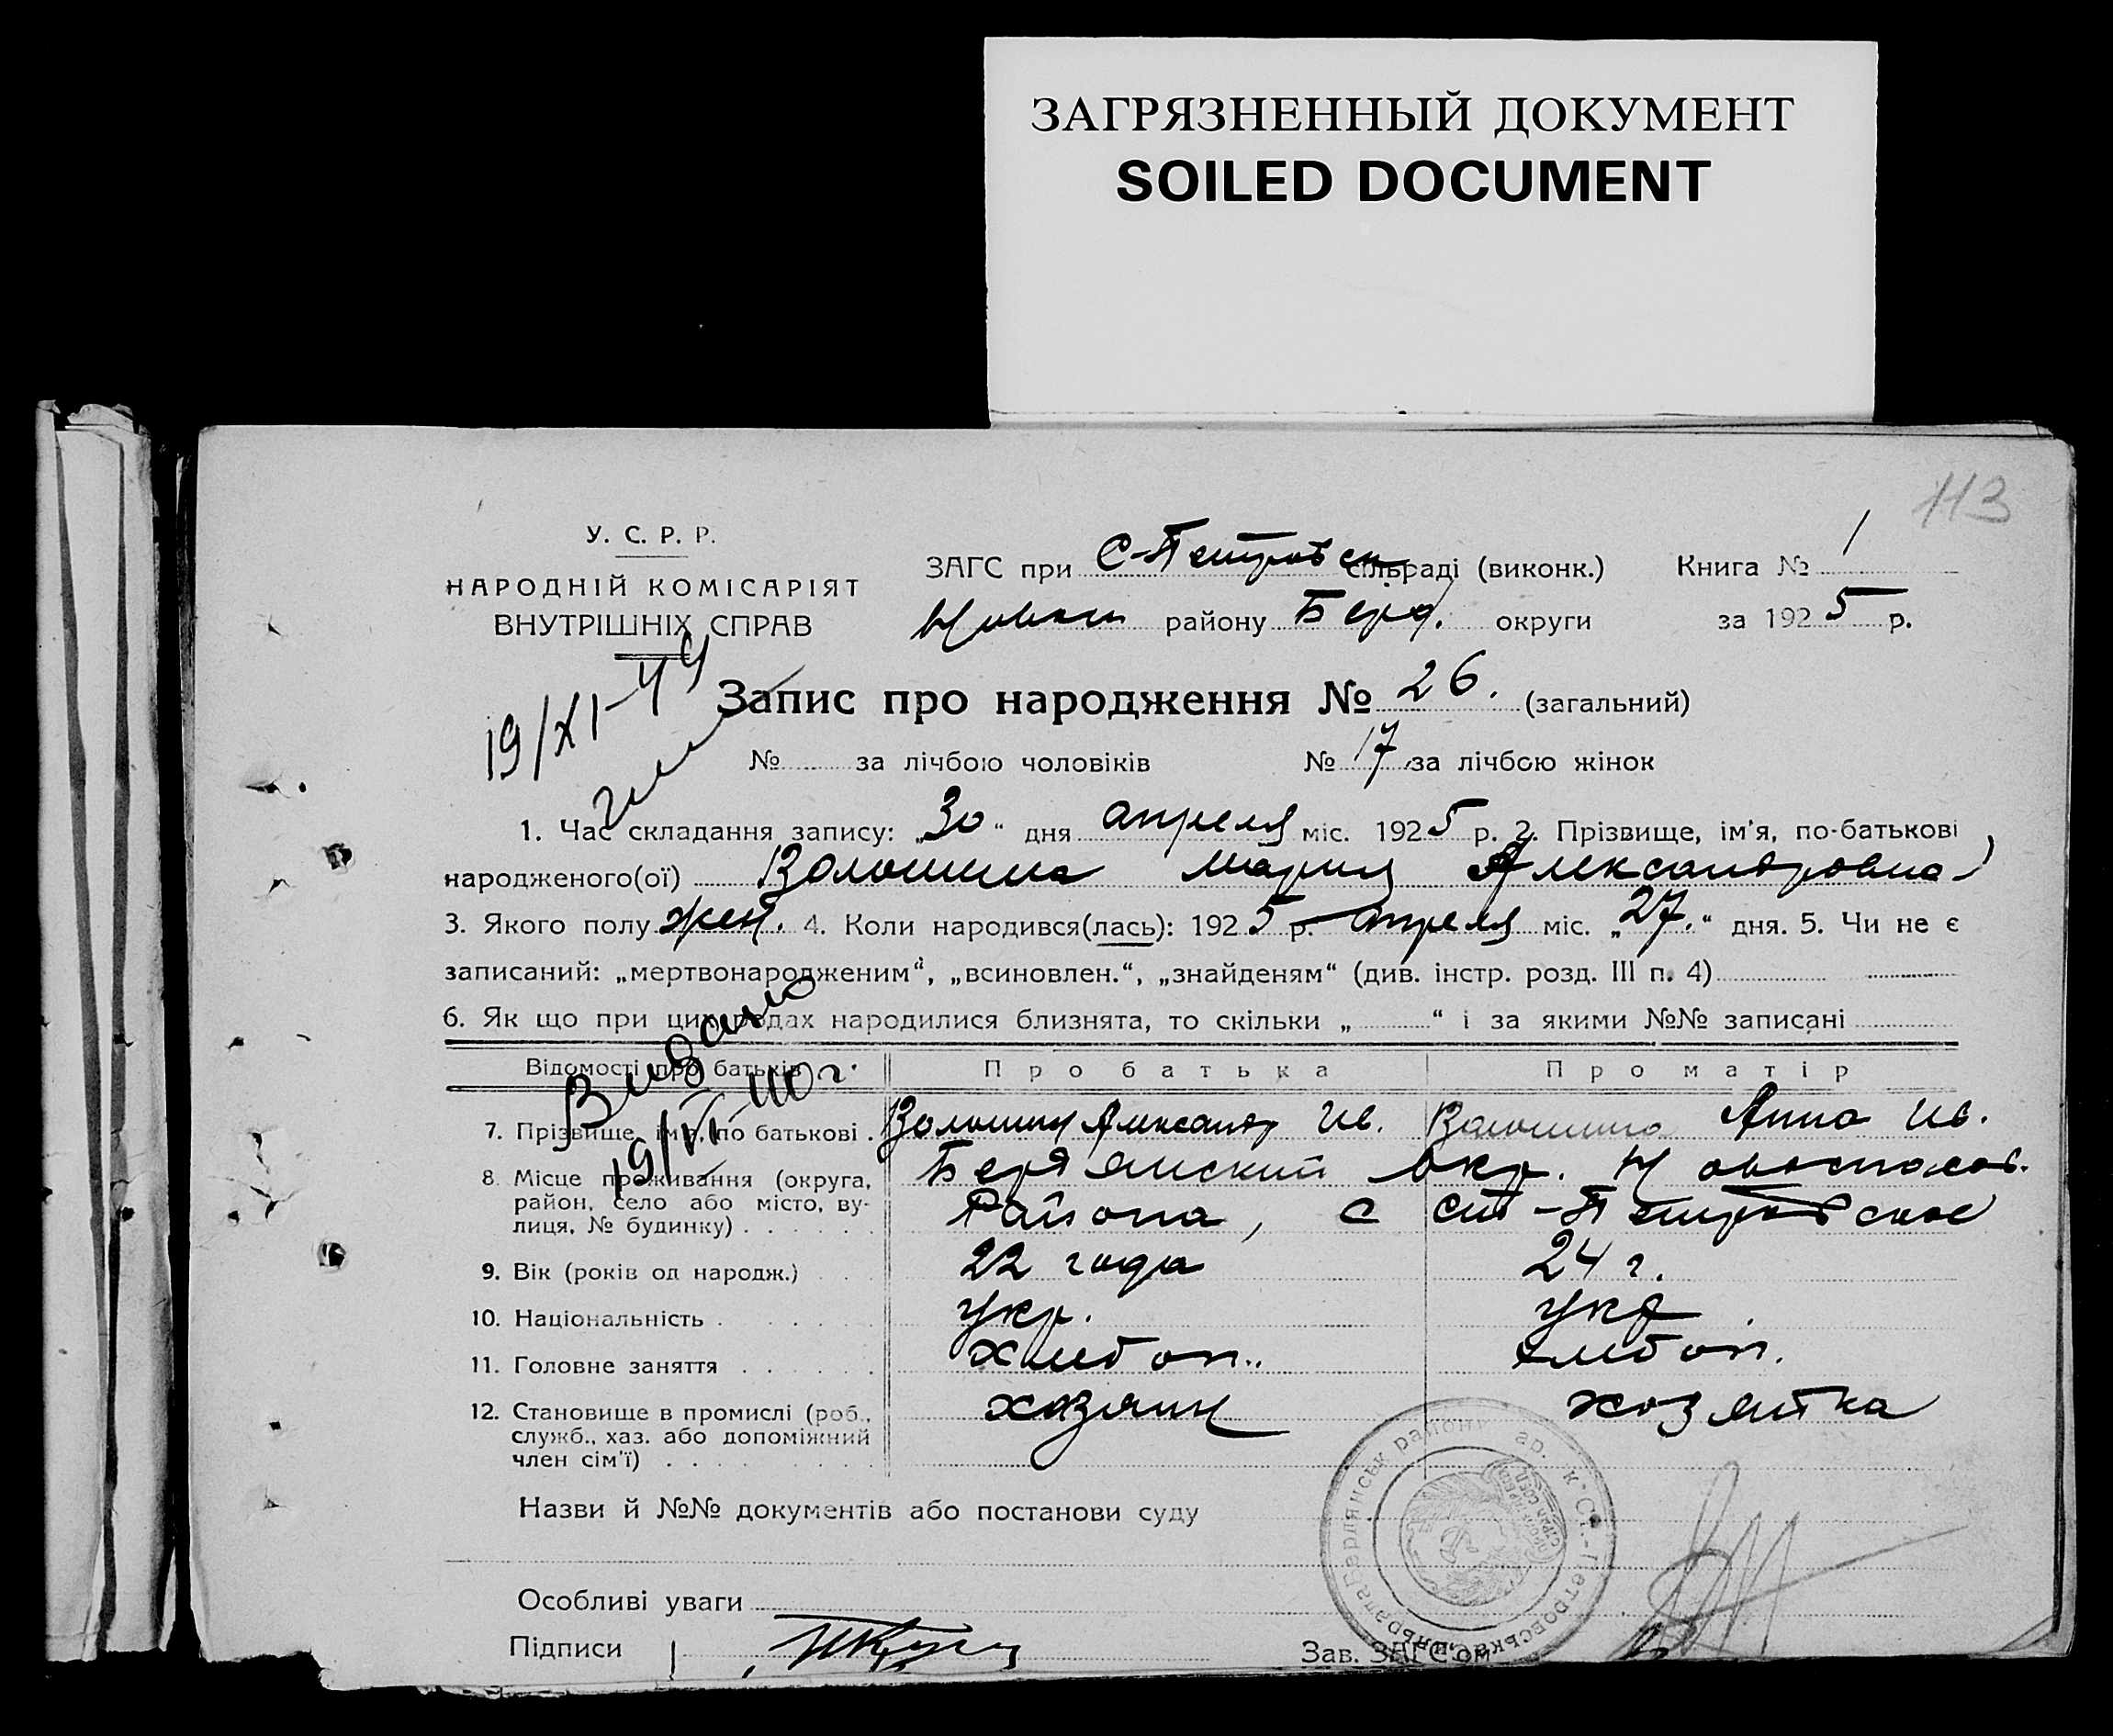 ЗАГРЯЗНЕННЫЙ ДОКУМЕНТ
SOILED DOCUMENT
113
У. С. Р. Р.
НАРОДНІЙ КОМІСАРІЯТ
ВНУТРІШНІХ СПРАВ
ЗАГС при С-Петровск сільраді (виконк.) Книга № 1
району Берд. округи за 1925 р.
19/XI-44
Запис про народження № 26. (загальний)
№ за лічбою чоловіків № 17 за лічбою жінок
1. Час складання запису: „30“ дня апреля міс. 1925 р. 2. Прізвище, ім'я, по-батькові
народженого(ої) Волошина Мария Александровна
3. Якого полу жен. 4. Коли народився(лась): 1925 р. апреля міс. „27.“ дня. 5. Чи не є
записаний: „мертвонародженим“, „всиновлен.“, „знайденям“ (див. інстр. розд. III п. 4)
6. Як що при цих родах народилися близнята, то скільки „ “ і за якими №№ записані
Відомості про батьків Про батька Про матір
7. Прізвище, ім'я, по батькові. Волошин Александр Ив. Волошина Анна Ив.
8. Місце проживання (округа, район, село або місто, вулиця, № будинку) Бердянский окр. Новоспасов.
Района, с Ст-Петровское
9. Вік (років од народж.) 22 года 24 г.
10. Національність укр. укр
11. Головне заняття хлебоп. хлебоп.
12. Становище в промислі (роб., служб., хаз. або допоміжний член сім'ї) хозяин хозяйка
Видано
19/VI-40 г.
Назви й №№ документів або постанови суду
Особливі уваги
Підписи
Зав. ЗАГС'ом